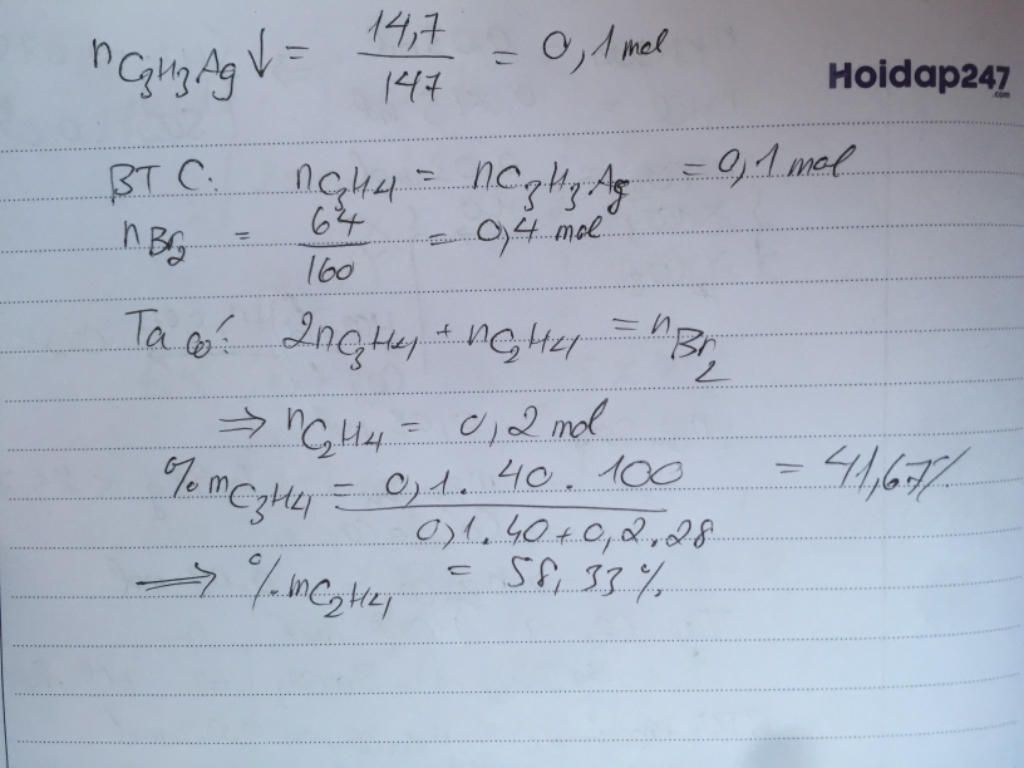 nC3H3Ag↓ = 14,7/147 = 0,1 mol
Hoidap247
.com
BT C: nC3H4 = nC3H3Ag = 0,1 mol
nBr2 = 64/160 = 0,4 mol
Ta có: 2nC3H4 + nC2H4 = nBr2
⇒ nC2H4 = 0,2 mol
%mC3H4 = 0,1.40.100/0,1.40+0,2.28 = 41,67%
⇒ %mC2H4 = 58,33%